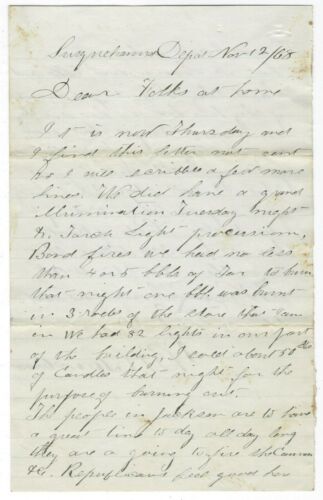 Susquehanna Depot Nov 12/68
Dear Folks at home
It is now Thursday and
I find this letter not sent
so I will scribble a few more
lines. We did have a grand
illumination Tuesday night
& Torch Light procession,
Bond fires we had no less
than 4 or 5 bbls of Tar to burn
that night one bbl. was burnt
in 3 rods of the store that I am
in We had 82 lights in our part
of the building, I sold about 50 lbs
of Candles that night for the
purpose of burning out.
The people in Jackson are to have
a great time to day all day long
they are a going to fire the Cannon
&c. Republicans feel good here